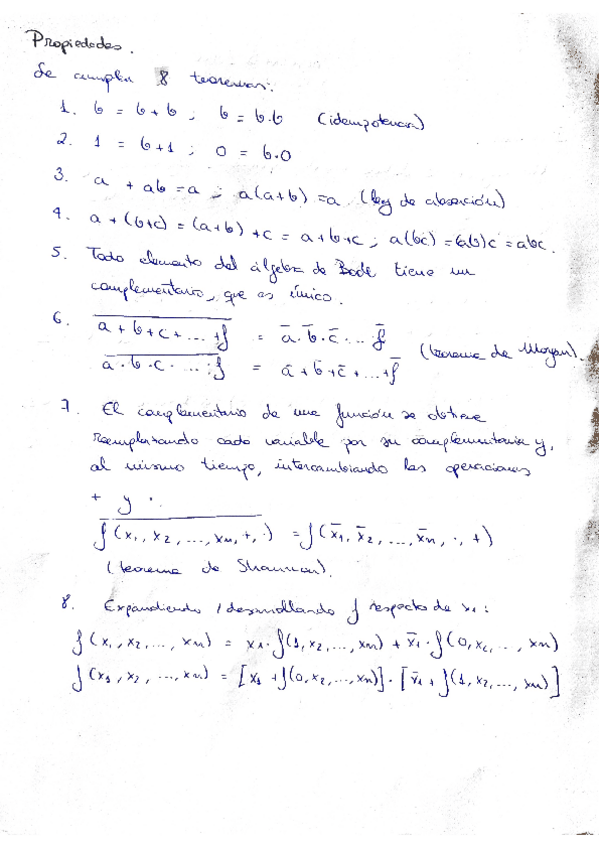 Propiedades.
Se cumplen 8 teoremas:
1. b = b+b ; b = b·b (idempotencia)
2. 1 = b+1 ; 0 = b·0
3. a + ab = a ; a(a+b) = a (ley de absorción)
4. a + (b+c) = (a+b) + c = a+b+c ; a(bc) = (ab)c = abc.
5. Todo elemento del álgebra de Boole tiene un
complementario, que es único.
6. \overline{a+b+c+...+f} = a̅·b̅·c̅ ... f̅
\overline{a·b·c·...·f} = a̅+b̅+c̅+...+f̅ (teorema de Morgan).
7. El complementario de una función se obtiene
reemplazando cada variable por su complementaria y,
al mismo tiempo, intercambiando las operaciones
+ y ·.
\overline{f(x₁, x₂, ..., xₙ, +, ·)} = f(x̅₁, x̅₂, ..., x̅ₙ, ·, +)
(teorema de Shannon).
8. Expandiendo / desarrollando f respecto de x₁:
f(x₁, x₂, ..., xₙ) = x₁·f(1, x₂, ..., xₙ) + x̅₁·f(0, x₂, .., xₙ)
f(x₁, x₂, ..., xₙ) = [x₁ + f(0, x₂, ..., xₙ)]·[x̅₁ + f(1, x₂, ..., xₙ)]